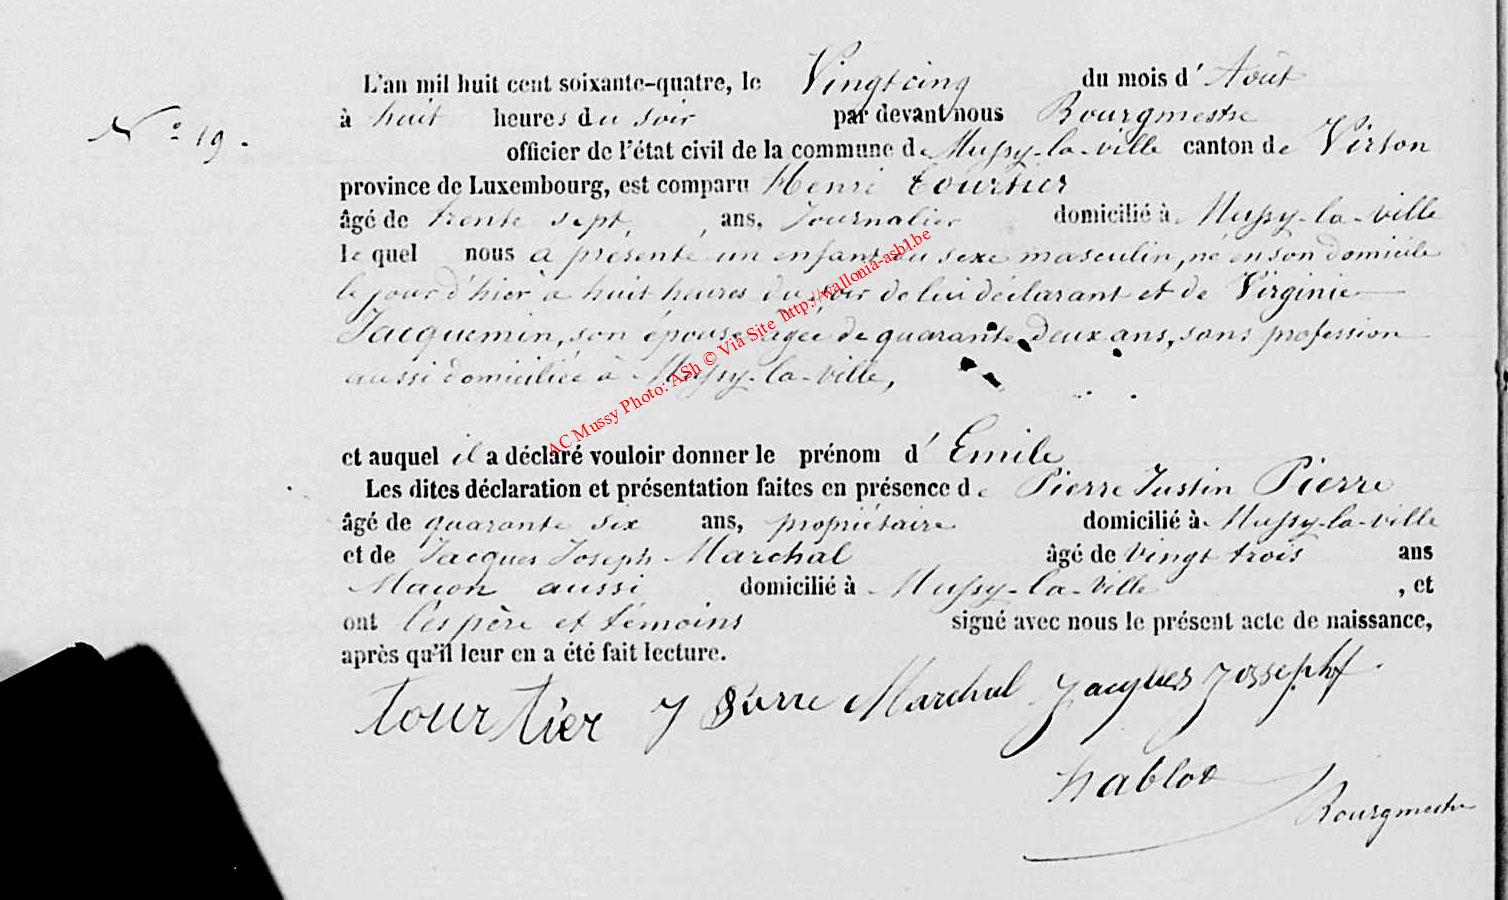 L'an mil huit cent soixante-quatre, le Vingtcinq du mois d' Août
à huit heures du soir par devant nous Bourgmestre
N° 19.
officier de l'état civil de la commune de Mussy-la-ville canton de Virton
province de Luxembourg, est comparu Henri tourtier
âgé de trente sept, ans, Journalier domicilié à Mussy-la-ville
le quel nous a présenté un enfant du sexe masculin, né en son domicile
le jour d'hier à huit heures du soir de lui déclarant et de Virginie
Jacquemin, son épouse agée de quarante deux ans, sans profession
aussi domiciliée à Mussy-la-ville,
AC Mussy Photo: ASh © Via Site http://wallonia-asbl.be
et auquel il a déclaré vouloir donner le prénom d' Emile
Les dites déclaration et présentation faites en présence de Pierre Justin Pierre
âgé de quarante six ans, propriétaire domicilié à Mussy-la-ville
et de Jacques Joseph Marchal âgé de vingt trois ans
Maçon aussi domicilié à Mussy-la-ville , et
ont les père et témoins signé avec nous le présent acte de naissance,
après qu'il leur en a été fait lecture.
tourtier J Pierre Marchal Jacques Jossephf
hablot
Bourgmestre